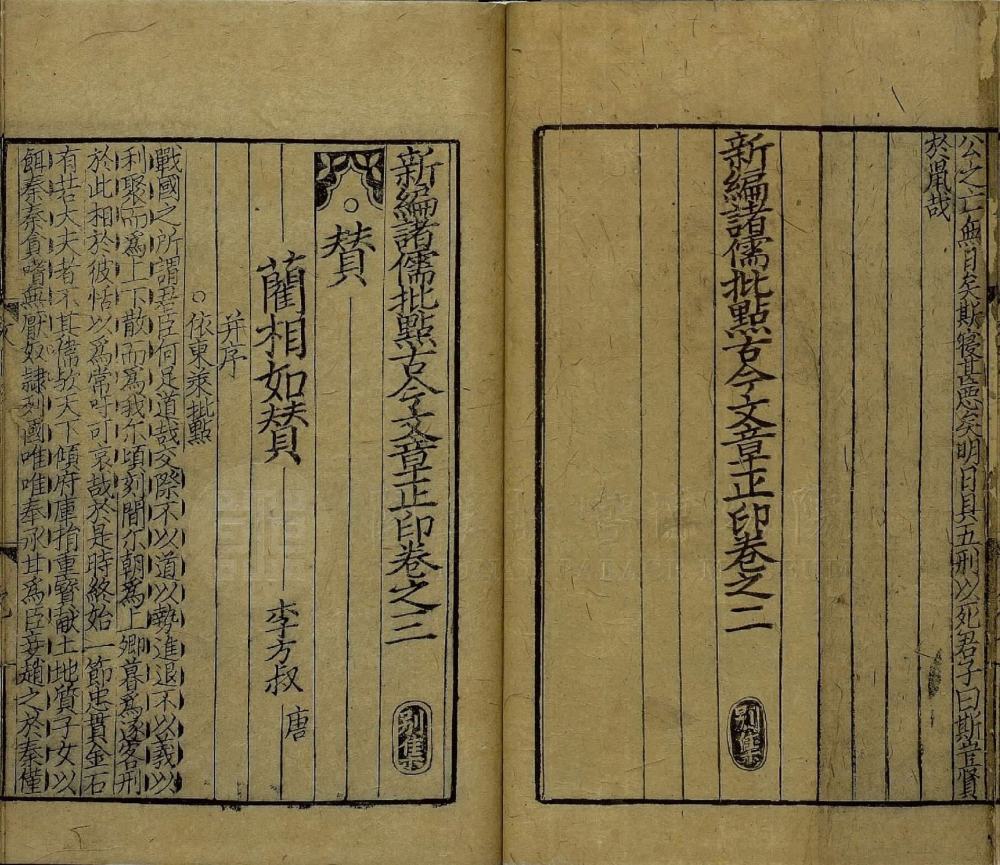 公之亡無日矣斯寢甚惡矣明日具五刑以死君子曰斯豈賢
於鼠哉
新編諸儒批點古今文章正印卷之二
別集
新編諸儒批點古今文章正印卷之三
別集
贊
藺相如贊
李方叔
唐
并序
依東萊批點
戰國之所謂君臣何足道哉交際不以道以勢進退不以義以
利聚而爲上下散而爲我尔頃刻間尔朝爲上卿暮爲逐客刑
於此相於彼恬以爲常吁可哀哉於是時終始一節忠貫金石
有若大夫者不其偉歟天下傾府庫捐重寶獻土地質子女以
餌秦秦貪嗜無厭奴隸列國唯唯奉承甘爲臣妾趙之於秦僅